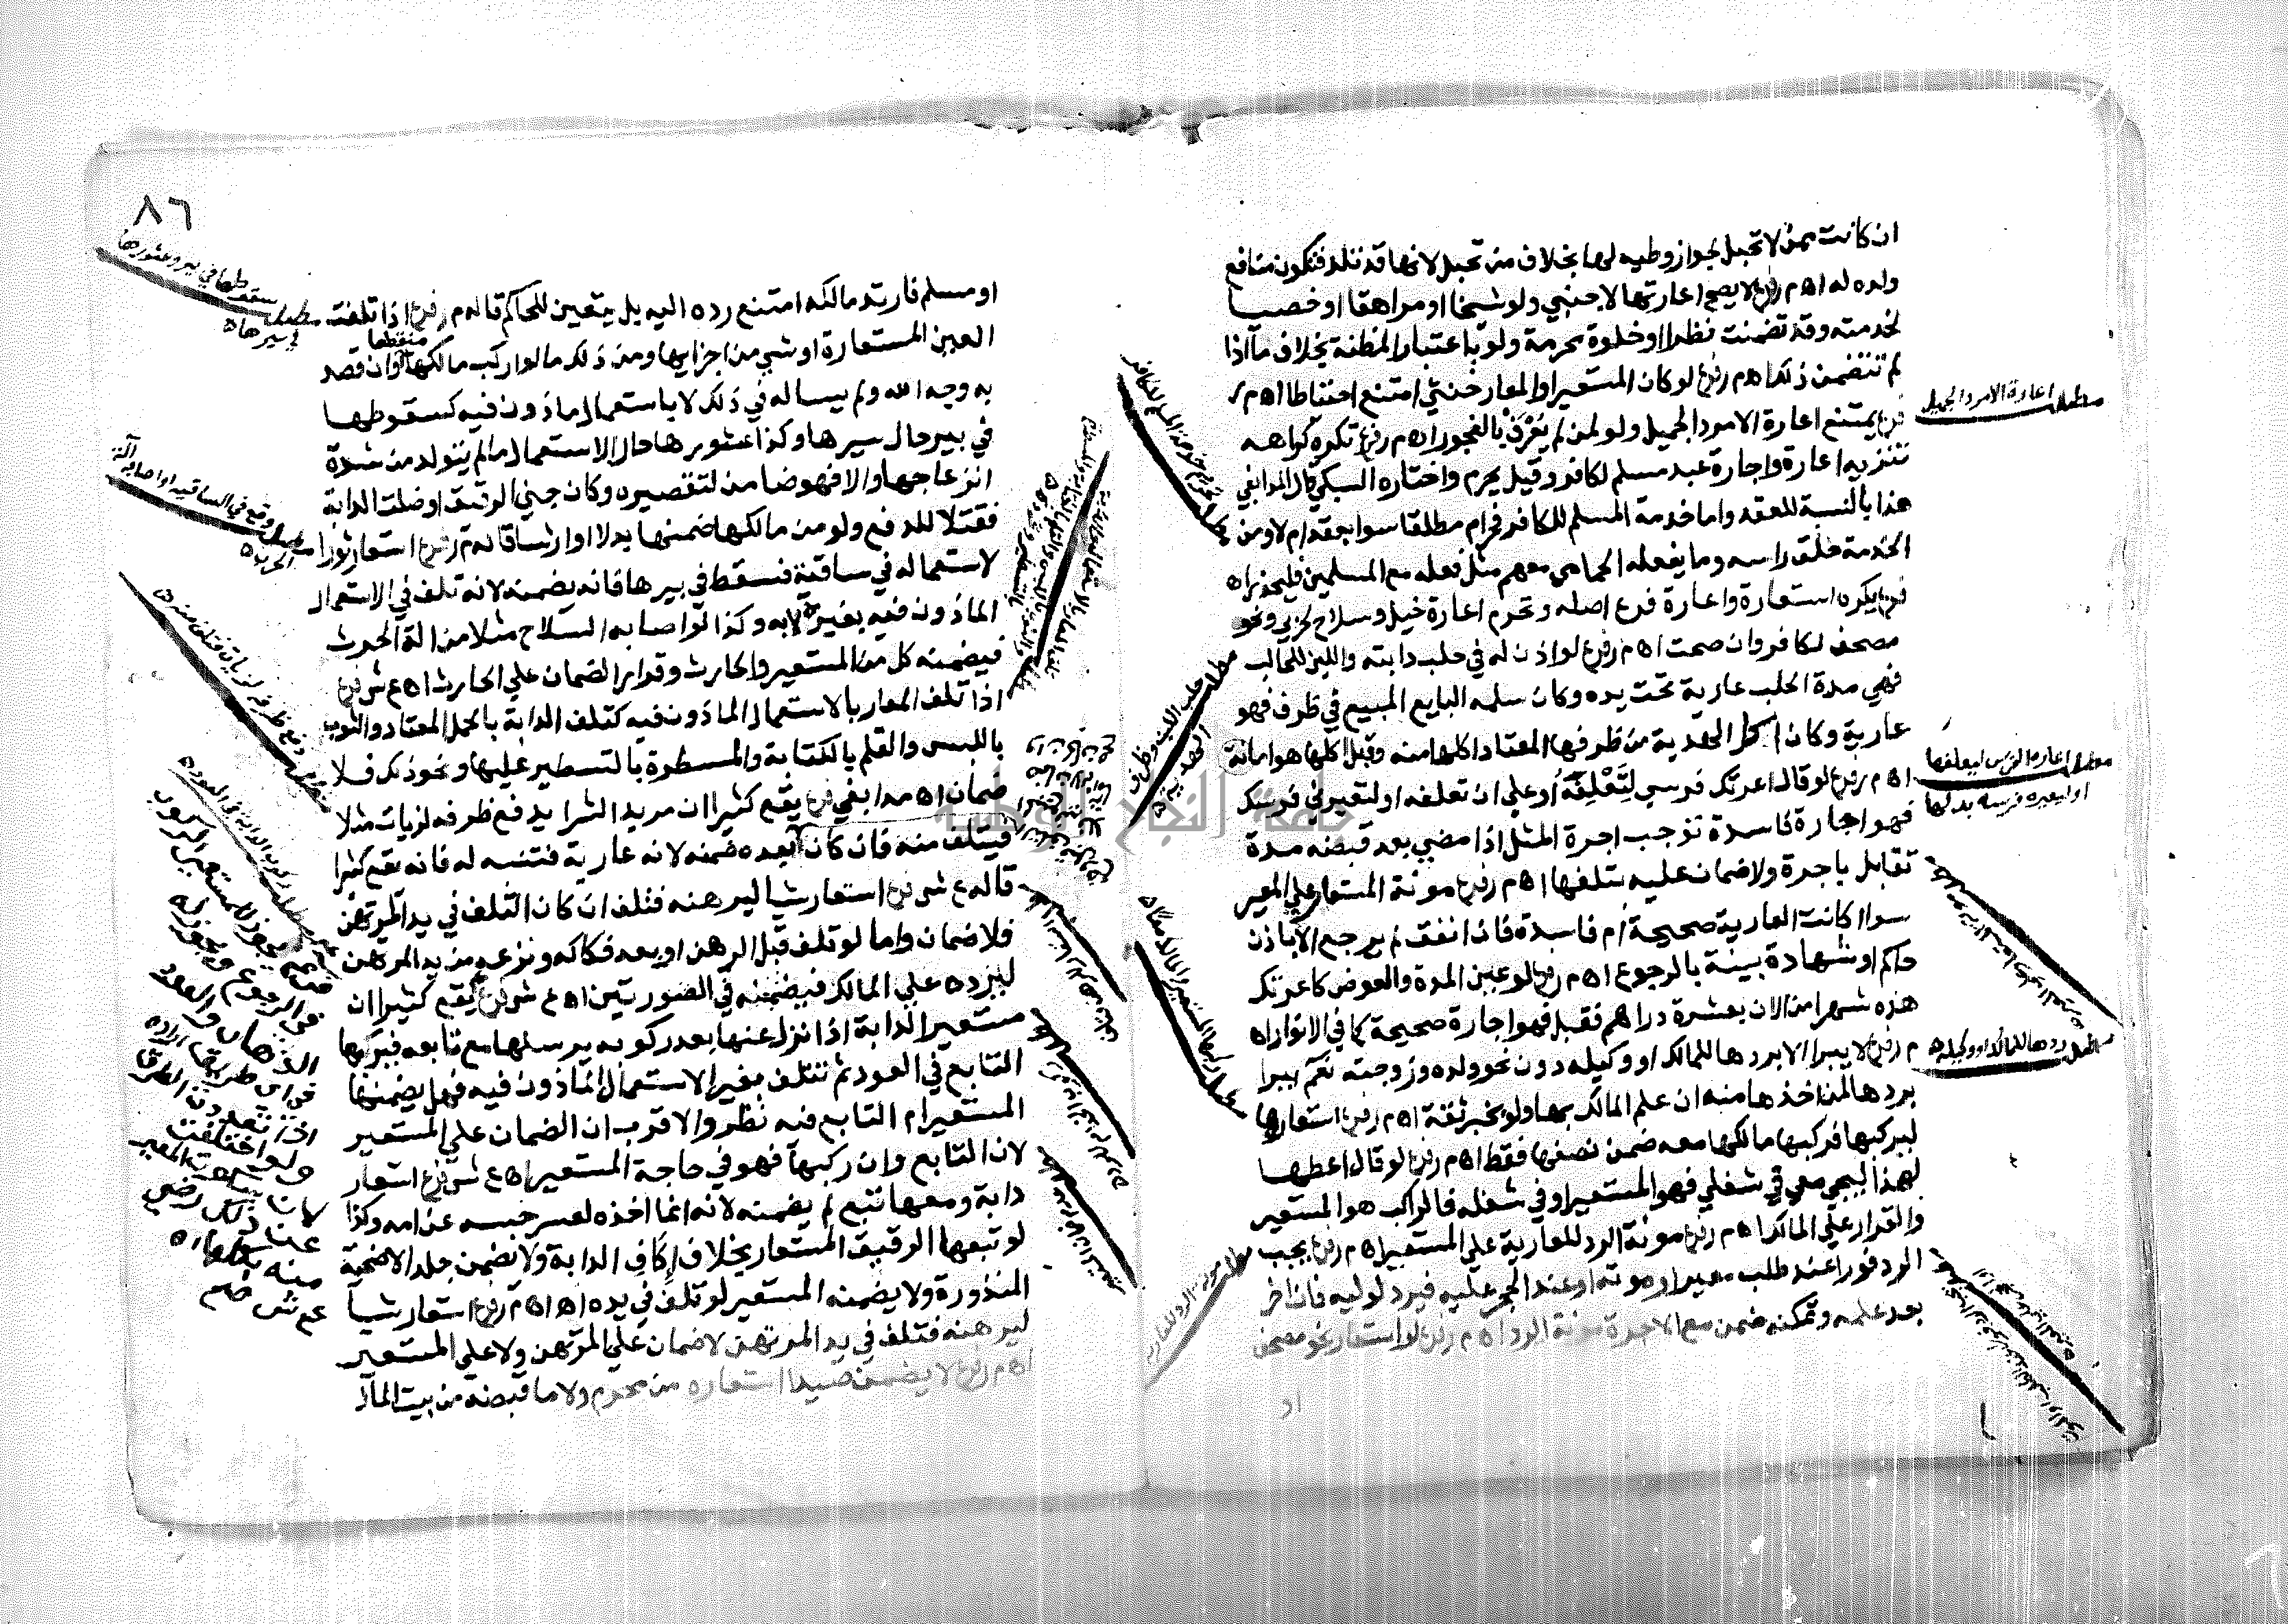 ان كانت ممن لا تحبل لجواز وطيه لها بخلاف من تحبل لانها قد تلد فتكون منافع
ولده له اه م ر فرع لا يصح اعارتها لاجنبي ولو شيخا او مراهقا او خصيا
لخدمته وقد تضمنت نظرا او خلوة محرمة ولو باعتبار المظنة بخلاف ما اذا
لم تتضمن ذلك اه م ر فرع لو كان المستعير او المعار خنثي امتنع احتياطا اه م ر
فرع يمتنع اعارة الامرد الجميل ولو لمن لم يعرف بالفجور اه م ر فرع تكره كراهه
تنزيه اعارة واجارة عبد مسلم لكافر وقيل يحرم واختاره السبكي قال المدابغي
هذا بالنسبة للعقد واما خدمة المسلم للكافر فحرام مطلقا سوا بعقد ام لا ومن
الخدمة حلق راسه وما يفعله الحمامي معهم مثل فعله مع المسلمين فليحذر اه
فرع يكره استعارة واعارة فرع اصله وتحرم اعارة خيل وسلاح لحربي ونحو
مصحف لكافر وان صحت اه م ر فرع لو اذن له في حلب دابته واللبن للحالب
فهي مدة الحلب عارية تحت يده وكان سلمه البايع المبيع في ظرف فهو
عارية وكان اكل الهدية من ظرفها المعتاد اكلها منه وقبل اكلها هو امانة
اه م ر فرع لو قال اعرتك فرسي لتعلفه او علي ان تعلفه او لتعيرني فرسك
فهو اجارة فاسدة توجب اجرة المثل اذا مضي بعد قبضه مدة
تقابل باجرة ولا ضمان عليه بتلفها اه م ر فرع مونة المستعار علي المعير
سوا كانت العارية صحيحة ام فاسدة فان انفق لم يرجع الا باذن
حاكم او شهادة بينة بالرجوع اه م ر فرع لو عين المدة والعوض كاعرتك
هذه شهرا من الان بعشرة دراهم فقبل فهو اجارة صحيحة كما في الانوار اه
م ر فرع لا يبرا الا بردها للمالك او وكيله دون نحو ولده وزوجته نعم يبرا
بردها لمن اخذها منه ان علم المالك بها ولو بخبر ثقة اه م ر فرع استعارها
ليركبها فركبها مالكها معه ضمن نصفها فقط اه م ر فرع لو قال اعطها
لهذا ليجي معي في شغلي فهو المستعير او في شغله فالراكب هو المستعير
والقرار علي المالك اه م ر فرع مونة الرد للعارية علي المستعير اه م ر فرع يجب
الرد فورا عند طلب معير او موته او عند الحجر عليه فيرد لوليه فان اخر
بعد علمه وتمكنه ضمن مع الاجرة مونة الرد اه م ر فرع لو استعار نحو مصحف
او
مطلب اعارة الامرد الجميل
مطلب اعارة الفرس ليعلفها
او ليعيره فرسه بدلها
مطلب ردها للمالك او وكيله اه
مطلب حلب اللبن وظرف
الهدية اه
مطلب مونة الرد للعارية
٨٦
او مسلم فارتد مالكه امتنع رده اليه بل يتعين للحاكم قاله م ر فرع اذا تلفت
العين المستعارة او شي من اجزايها ومن ذلك ما لو اركب مالكها منقطعا وان قصد
به وجه الله ولم يساله في ذلك لا باستعمال ماذون فيه كسقوطها
في بير حال سيرها وكذا عثورها حال الاستعمال ما لم يتولد من شدة
انزعاجها والا فهو ضامن لتقصيره وكان جني الرقيق او صلت الدابة
فقتلا للدفع ولو من مالكها ضمنها بدلا او ارشا قاله م ر فرع استعار ثورا
لاستعماله في ساقية فسقط في بيرها فانه يضمنه لانه تلف في الاستعمال
الماذون فيه بغيره لا به وكذا لو اصابه السلاح مثلا من الة الحرث
فيضمنه كل من المستعير والحارث وقرار الضمان علي الحارث اه ع ش فرع
اذا تلف المعار بالاستعمال الماذون فيه كتلف الدابة بالحمل المعتاد والثوب
باللبس والقلم بالكتابة والمسطرة بالتسطير عليها ونحو ذلك فلا
ضمان اه مدابغي فرع يقع كثيرا ان مريد الشرا يدفع ظرفه لزيات مثلا
فيتلف منه فان كان بعده ضمنه لانه عارية فتنبه له فانه يقع كثيرا
قاله ع ش فرع استعار شيا ليرهنه فتلف ان كان التلف في يد المرتهن
فلا ضمان واما لو تلف قبل الرهن او بعد فكاكه ونزعه من يد المرتهن
ليرده علي المالك فيضمنه في الصورتين اه ع ش فرع يقع كثيرا ان
مستعير الدابة اذا نزل عنها بعد ركوبه يرسلها مع تابعه فيركبها
التابع في العود ثم تتلف بغير الاستعمال الماذون فيه فهل يضمنها
المستعير ام التابع فيه نظر والاقرب ان الضمان علي المستعير
لان التابع وان ركبها فهو في حاجة المستعير اه ع ش فرع استعار
دابة ومعها تبع لم يضمنه لانه انما اخذه لعسر حبسه عن امه وكذا
لو تبعها الرقيق المستعار بخلاف اكاف الدابة ولا يضمن جلد الاضحية
المنذورة ولا يضمنه المستعير لو تلف في يده اه م ر فرع استعار شيا
ليرهنه فتلف في يد المرتهن لا ضمان علي المرتهن ولا علي المستعير
اه م ر فرع لا يضمن صيدا استعاره من محرم ولا ما قبضه من بيت المال
مطلب سقوطها في بير وعثورها
في سيرها اه
يجوز للمستعير الركوب
في الرجوع ويجوز له
الذهاب والعود
ولو اختلفت